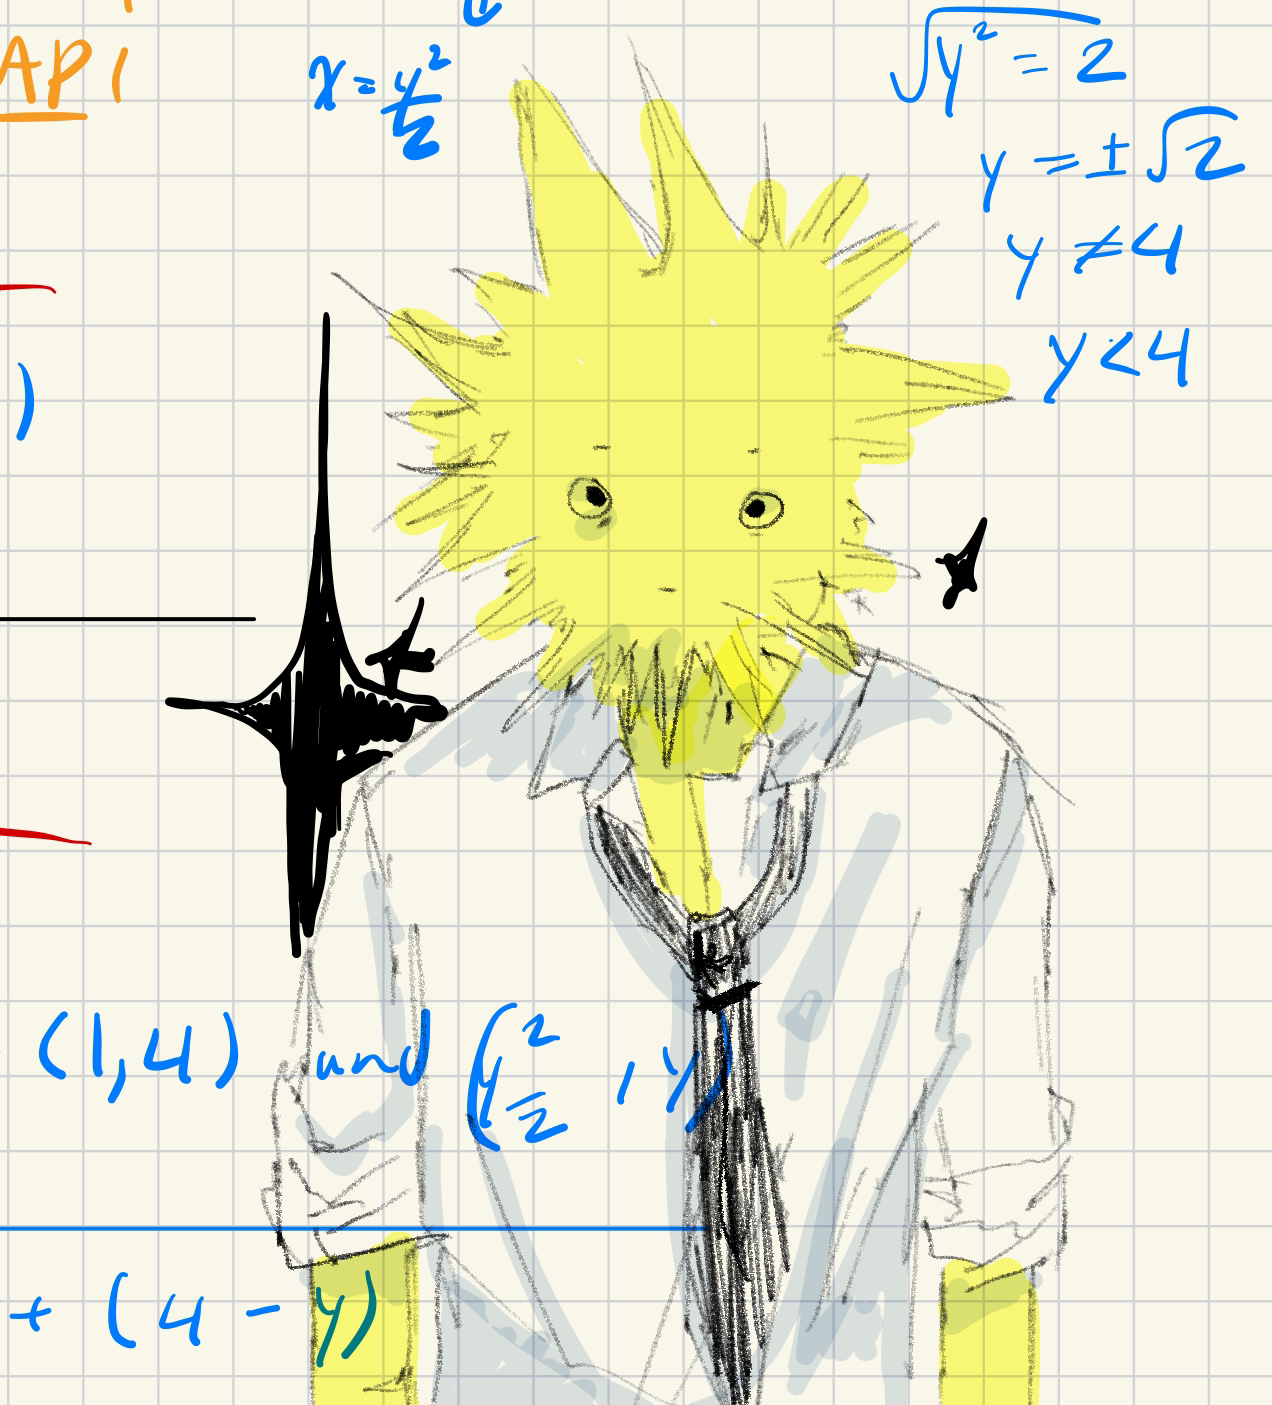 API
x = y²/2
√y² = 2
y = ±√2
y ≠ 4
y < 4
)
(1,4) and (y²/2 , y)
+ (4 - y)